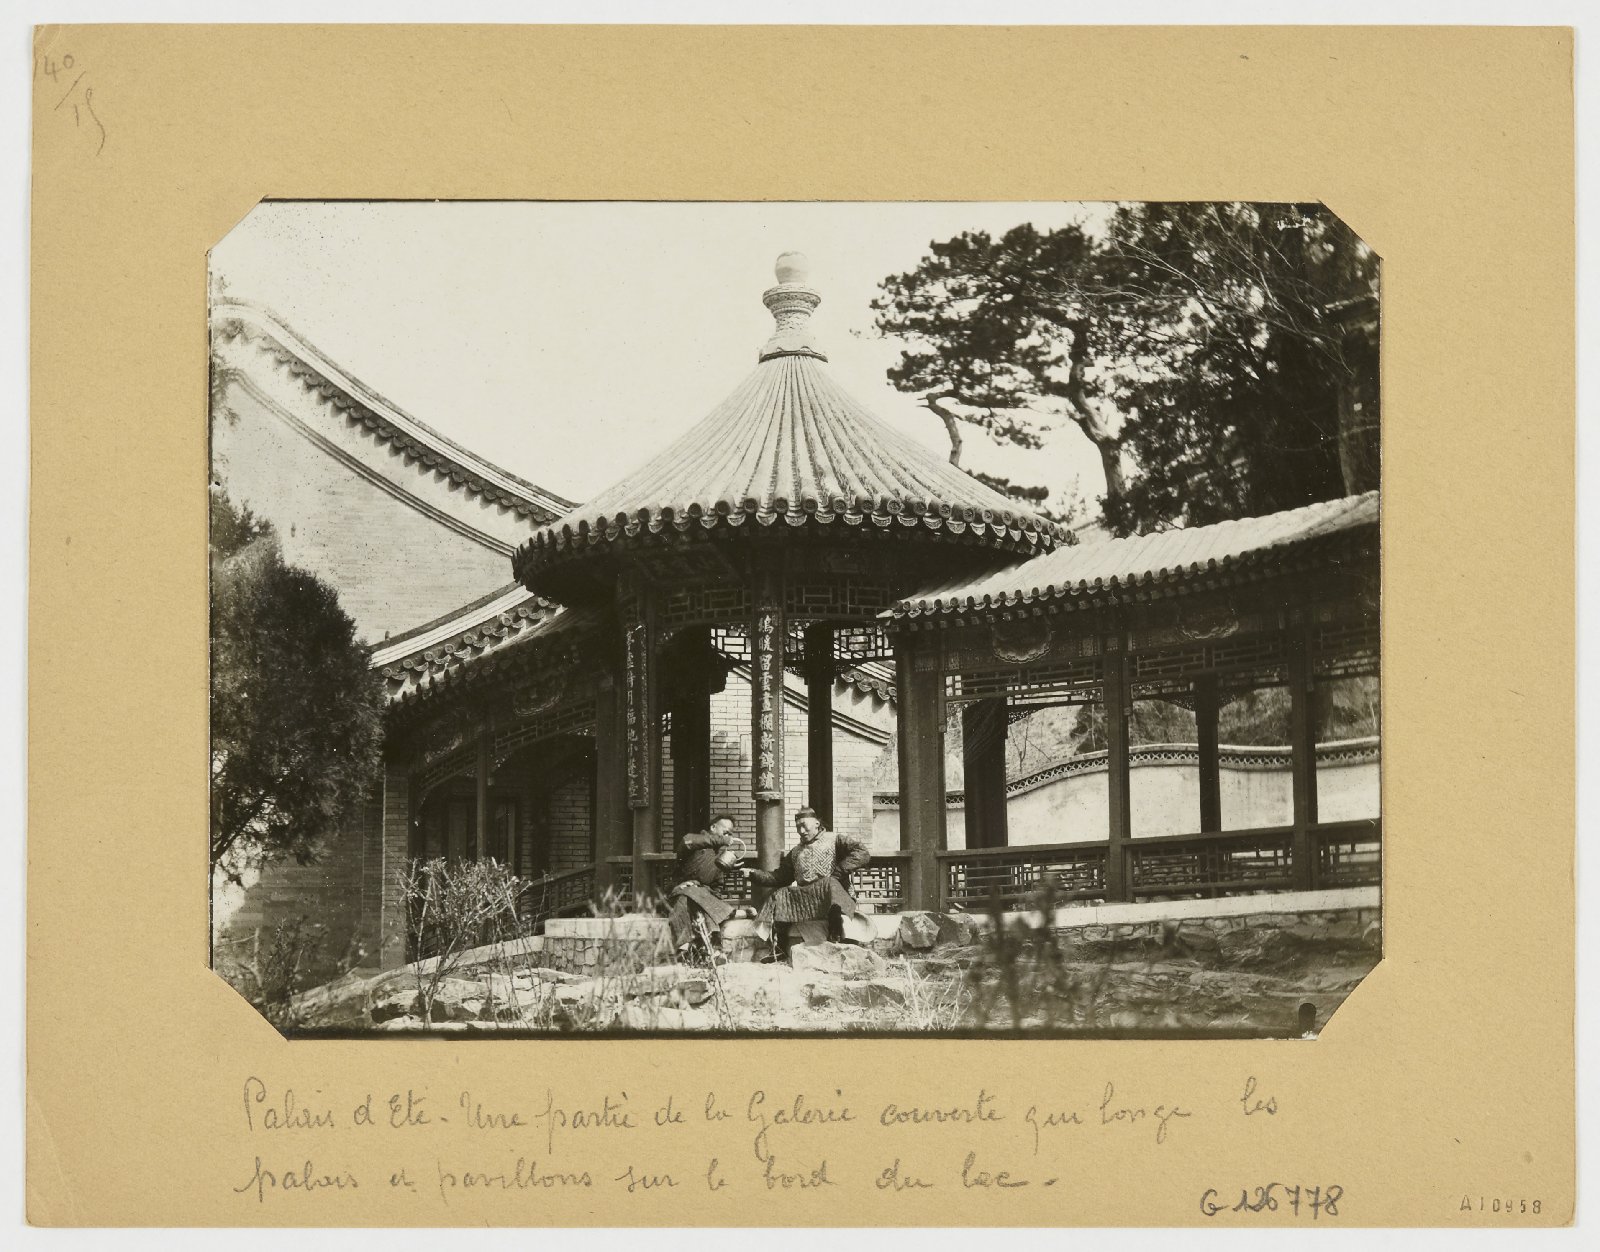 40
/15
塢暖留雲畫棚新錦繡
Palais d'Ete - Une partie de la Galerie couverte qui longe les
palais et pavillons sur le bord du lac -
G 126778
A10958